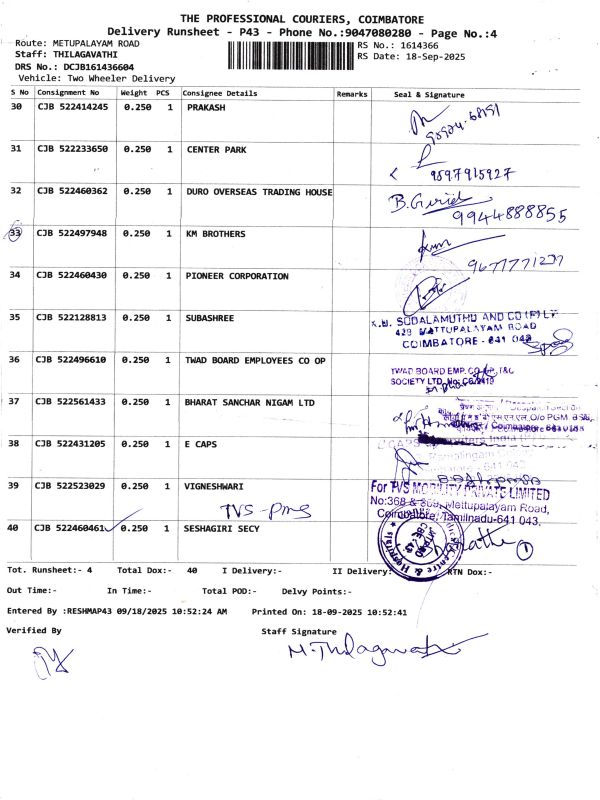 THE PROFESSIONAL COURIERS, COIMBATORE
Delivery Runsheet - P43 - Phone No.:9047080280 - Page No.:4
Route: METUPALAYAM ROAD
RS No.: 1614366
Staff: THILAGAVATHI
RS Date: 18-Sep-2025
DRS No.: DCJB161436604
Vehicle: Two Wheeler Delivery
S No Consignment No Weight PCS Consignee Details Remarks Seal & Signature
30 CJB 522414245 0.250 1 PRAKASH
31 CJB 522233650 0.250 1 CENTER PARK
9597915927
32 CJB 522460362 0.250 1 DURO OVERSEAS TRADING HOUSE
9944888855
33 CJB 522497948 0.250 1 KM BROTHERS
9677771237
34 CJB 522460430 0.250 1 PIONEER CORPORATION
35 CJB 522128813 0.250 1 SUBASHREE
SODALAMUTHU AND CO (P) LT
METTUPALAYAM ROAD
COIMBATORE - 641 043
36 CJB 522496610 0.250 1 TWAD BOARD EMPLOYEES CO OP
TWAD BOARD EMP. T&C
SOCIETY LTD. No:
37 CJB 522561433 0.250 1 BHARAT SANCHAR NIGAM LTD
O/o PGM
38 CJB 522431205 0.250 1 E CAPS
39 CJB 522523029 0.250 1 VIGNESHWARI
TVS - pms
For TVS MOBILITY PRIVATE LIMITED
No:368 & 369, Mettupalayam Road,
Coimbatore, Tamilnadu-641 043.
40 CJB 522460461 0.250 1 SESHAGIRI SECY
Tot. Runsheet:- 4 Total Dox:- 40 I Delivery:- II Delivery: RTN Dox:-
Out Time:- In Time:- Total POD:- Delvy Points:-
Entered By :RESHMAP43 09/18/2025 10:52:24 AM Printed On: 18-09-2025 10:52:41
Verified By Staff Signature
M. Thilagavathi